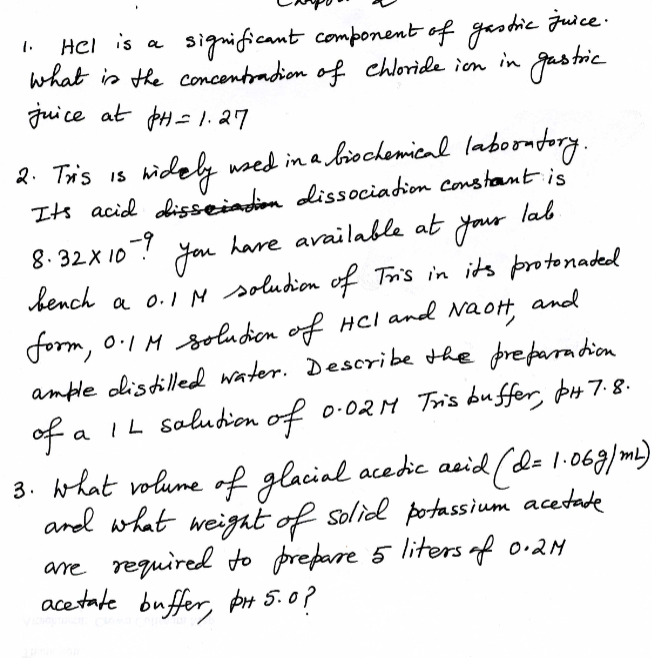 1. HCl is a significant component of gastric juice.
What is the concentration of chloride ion in gastric
juice at pH = 1.27
2. Tris is widely used in a biochemical laboratory.
Its acid dissociation dissociation constant is
8.32 X 10⁻⁹. you have available at your lab
bench a 0.1 M solution of Tris in its protonated
form, 0.1 M solution of HCl and NaOH, and
ample distilled water. Describe the preparation
of a 1L solution of 0.02M Tris buffer, pH 7.8.
3. What volume of glacial acetic acid (d= 1.06g/mL)
and what weight of solid potassium acetate
are required to prepare 5 liters of 0.2M
acetate buffer, pH 5.0?